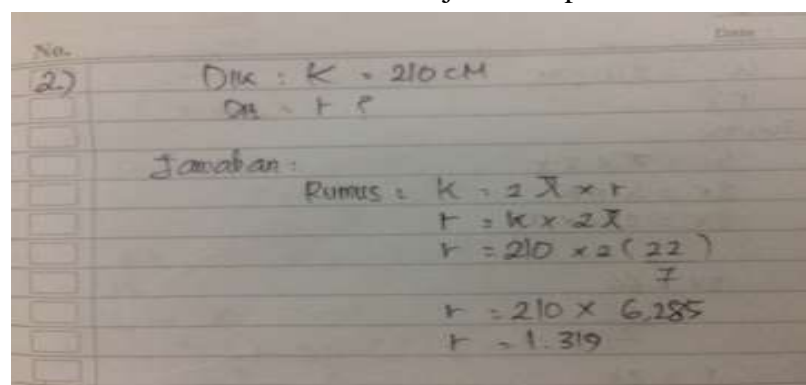 No.
2.) Dik : K = 210 cM
Dit = r ?
Jawaban :
Rumus : K = 2 π x r
r = K x 2 π
r = 210 x 2 ( 22 )
7
r = 210 x 6,285
r = 1.319